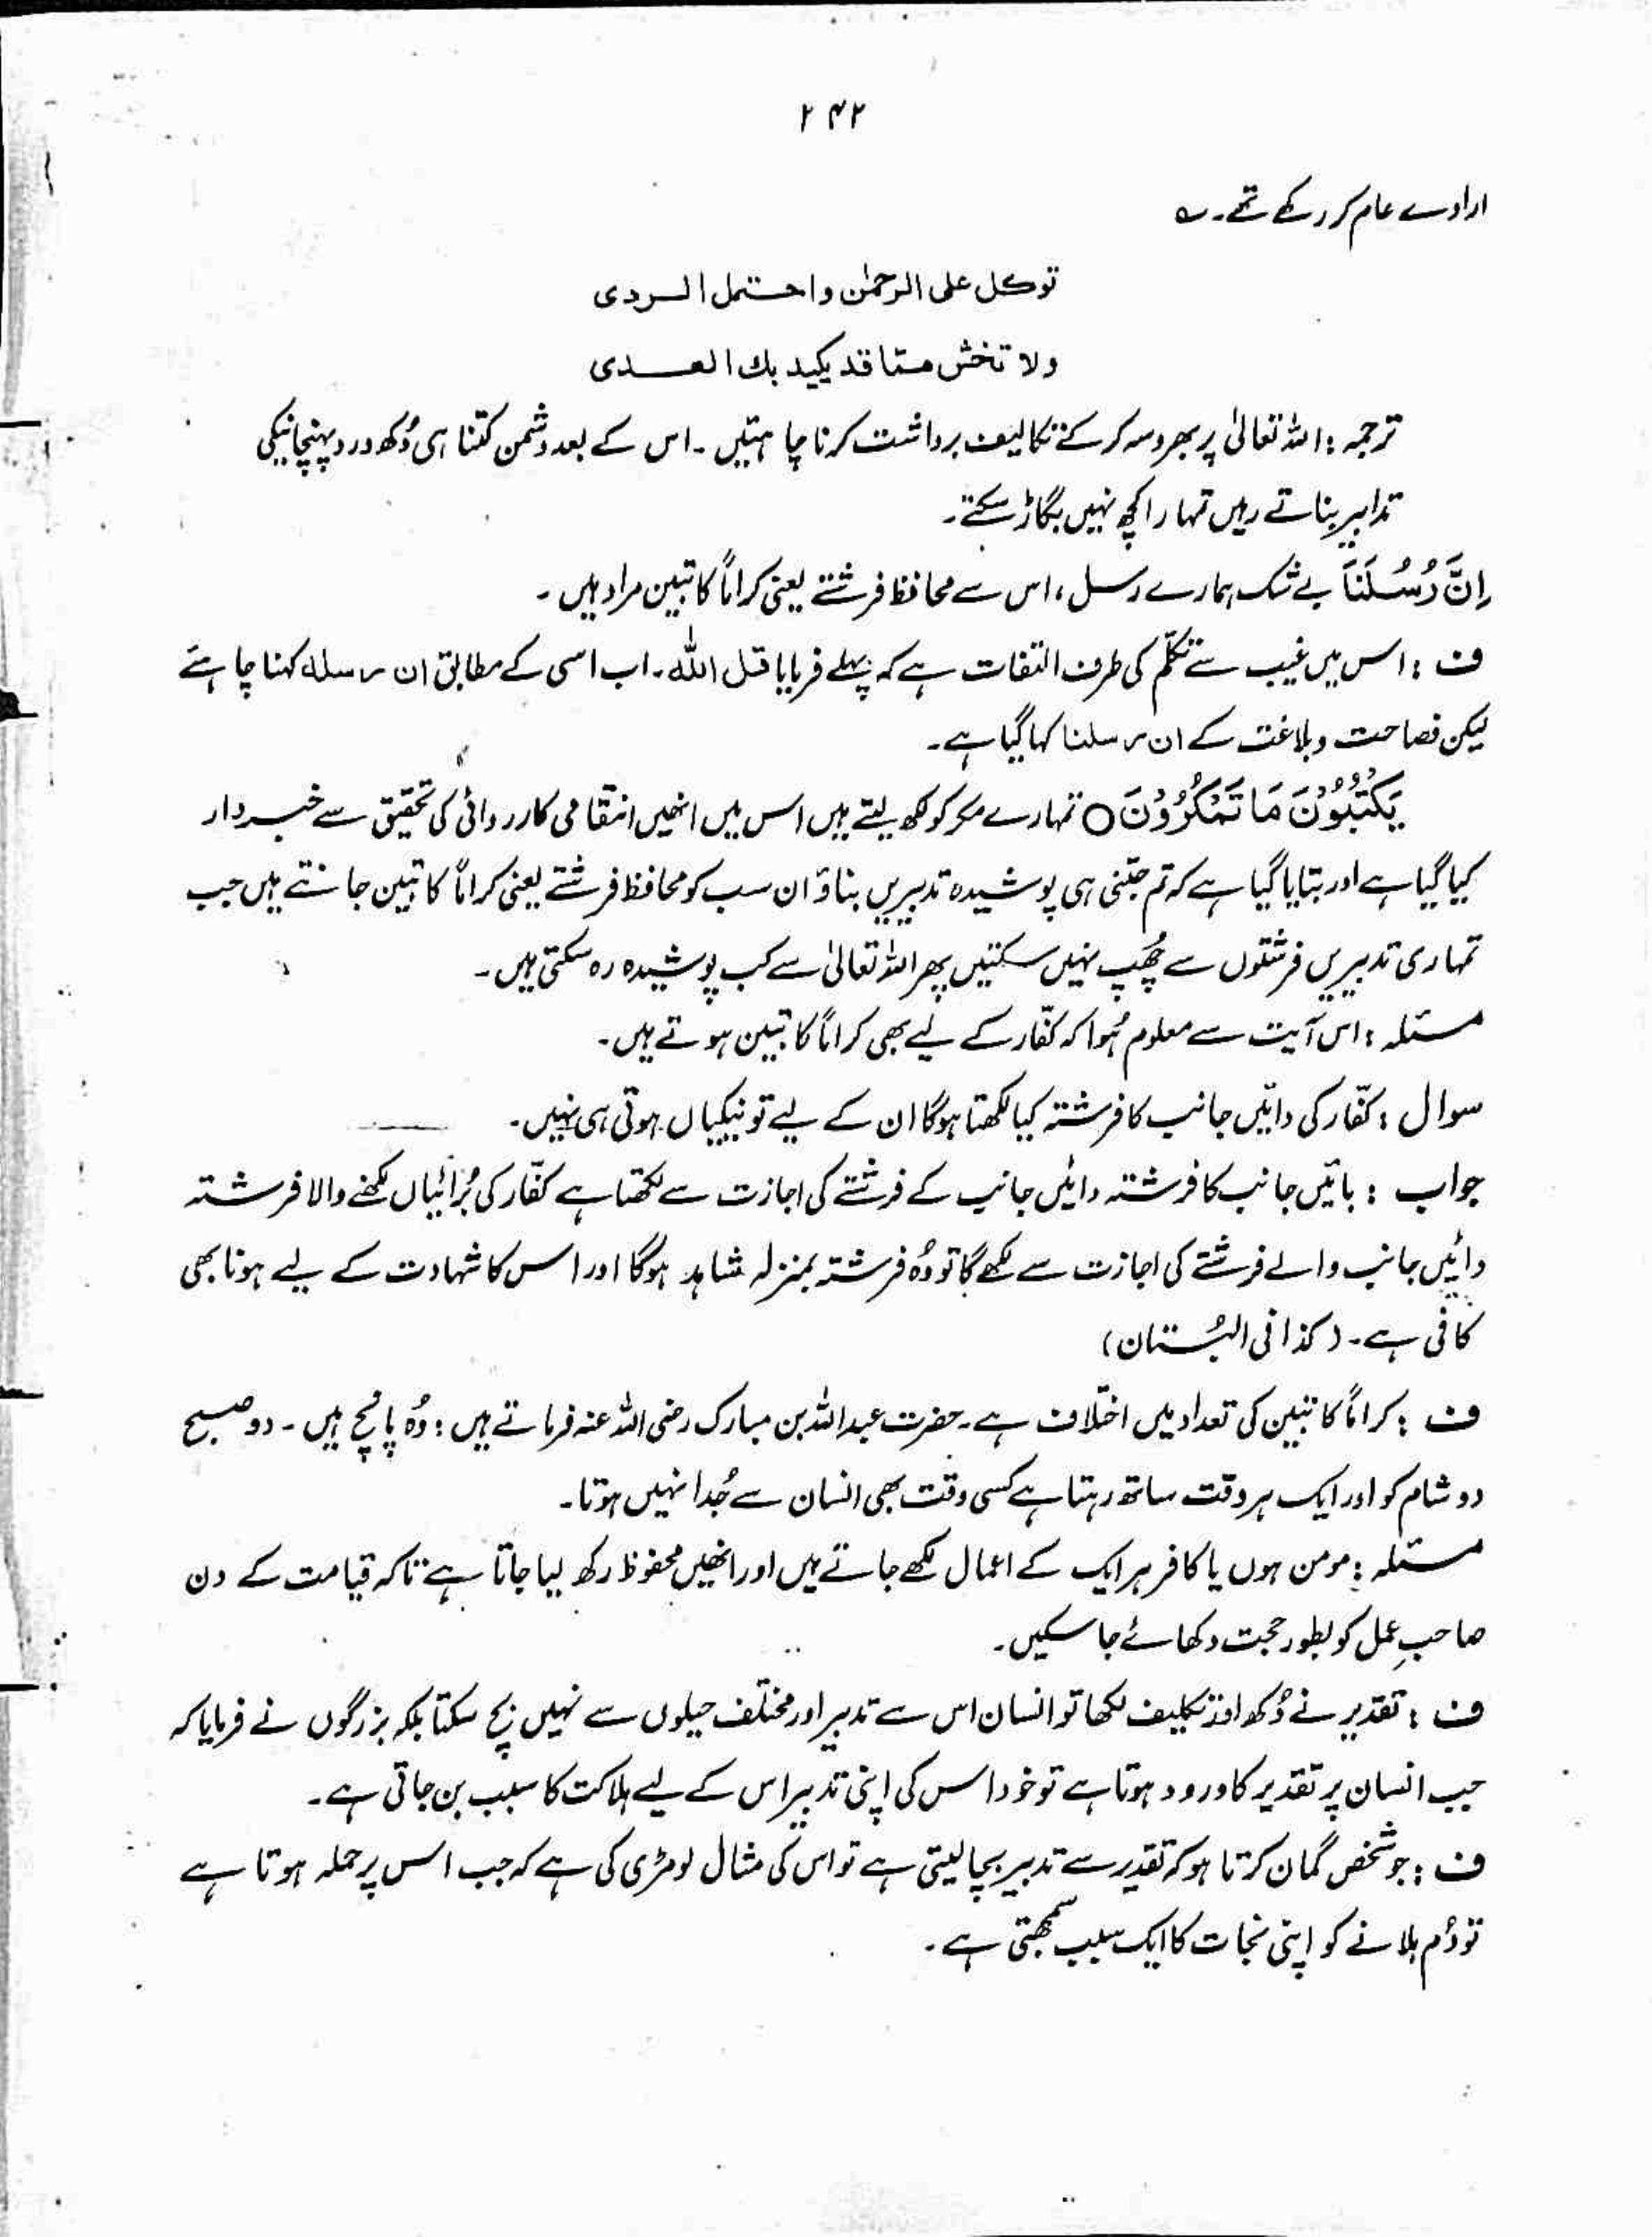 ۲۴۲
ارادے عام کر رکھے تھے۔ ؎
توكل على الرحمٰن واحتمل الردى
ولا تخش مما قد يكيد بك العدى
ترجمہ : اللہ تعالیٰ پر بھروسہ کر کے تکالیف برداشت کرنا چاہئیں ۔ اس کے بعد دشمن کتنا ہی دُکھ درد پہنچانیکی
تدابیر بناتے رہیں تمہارا کچھ نہیں بگاڑ سکتے۔
اِنَّ رُسُلَنَا بے شک ہمارے رسل ، اس سے محافظ فرشتے یعنی کراماً کاتبین مراد ہیں ۔
ف : اس میں غیب سے تکلّم کی طرف التفات ہے کہ پہلے فرمایا قل اللّٰہ ۔ اب اسی کے مطابق ان رسلہ کہنا چاہئے
لیکن فصاحت و بلاغت کے ان رسلنا کہا گیا ہے۔
يَكْتُبُوْنَ مَا تَمْكُرُوْنَ ○ تمہارے مکر کو لکھ لیتے ہیں اس میں انھیں انتقامی کارروائی کی تحقیق سے خبردار
کیا گیا ہے اور بتایا گیا ہے کہ تم جتنی ہی پوشیدہ تدبیریں بناؤ ان سب کو محافظ فرشتے یعنی کراماً کاتبین جانتے ہیں جب
تمہاری تدبیریں فرشتوں سے چُھپ نہیں سکتیں پھر اللہ تعالیٰ سے کب پوشیدہ رہ سکتی ہیں ۔
مسئلہ : اس آیت سے معلوم ہُوا کہ کفّار کے لیے بھی کراماً کاتبین ہوتے ہیں ۔
سوال : کفّار کی دائیں جانب کا فرشتہ کیا لکھتا ہوگا ان کے لیے تو نیکیاں ہوتی ہی نہیں ۔
جواب : بائیں جانب کا فرشتہ دائیں جانب کے فرشتے کی اجازت سے لکھتا ہے کفّار کی بُرائیاں لکھنے والا فرشتہ
دائیں جانب والے فرشتے کی اجازت سے لکھے گا تو وُہ فرشتہ بمنزلہ شاہد ہوگا اور اس کا شہادت کے لیے ہونا بھی
کافی ہے ۔ (کذا فی البُستان)
ف : کراماً کاتبین کی تعداد میں اختلاف ہے ۔ حضرت عبداللہ بن مبارک رضی اللہ عنہ فرماتے ہیں : وُہ پانچ ہیں ۔ دو صبح
دو شام کو اور ایک ہر وقت ساتھ رہتا ہے کسی وقت بھی انسان سے جُدا نہیں ہوتا ۔
مسئلہ : مومن ہوں یا کافر ہر ایک کے اعمال لکھے جاتے ہیں اور انھیں محفوظ رکھ لیا جاتا ہے تاکہ قیامت کے دن
صاحبِ عمل کو بطور حجت دکھائے جا سکیں ۔
ف : تقدیر نے دُکھ اور تکلیف لکھا تو انسان اس سے تدبیر اور مختلف حیلوں سے نہیں بچ سکتا بلکہ بزرگوں نے فرمایا کہ
جب انسان پر تقدیر کا ورود ہوتا ہے تو خود اس کی اپنی تدبیر اس کے لیے ہلاکت کا سبب بن جاتی ہے ۔
ف : جو شخص گمان کرتا ہو کہ تقدیر سے تدبیر بچا لیتی ہے تو اس کی مثال لومڑی کی ہے کہ جب اس پر حملہ ہوتا ہے
تو دُم ہلانے کو اپنی نجات کا ایک سبب سمجھتی ہے ۔